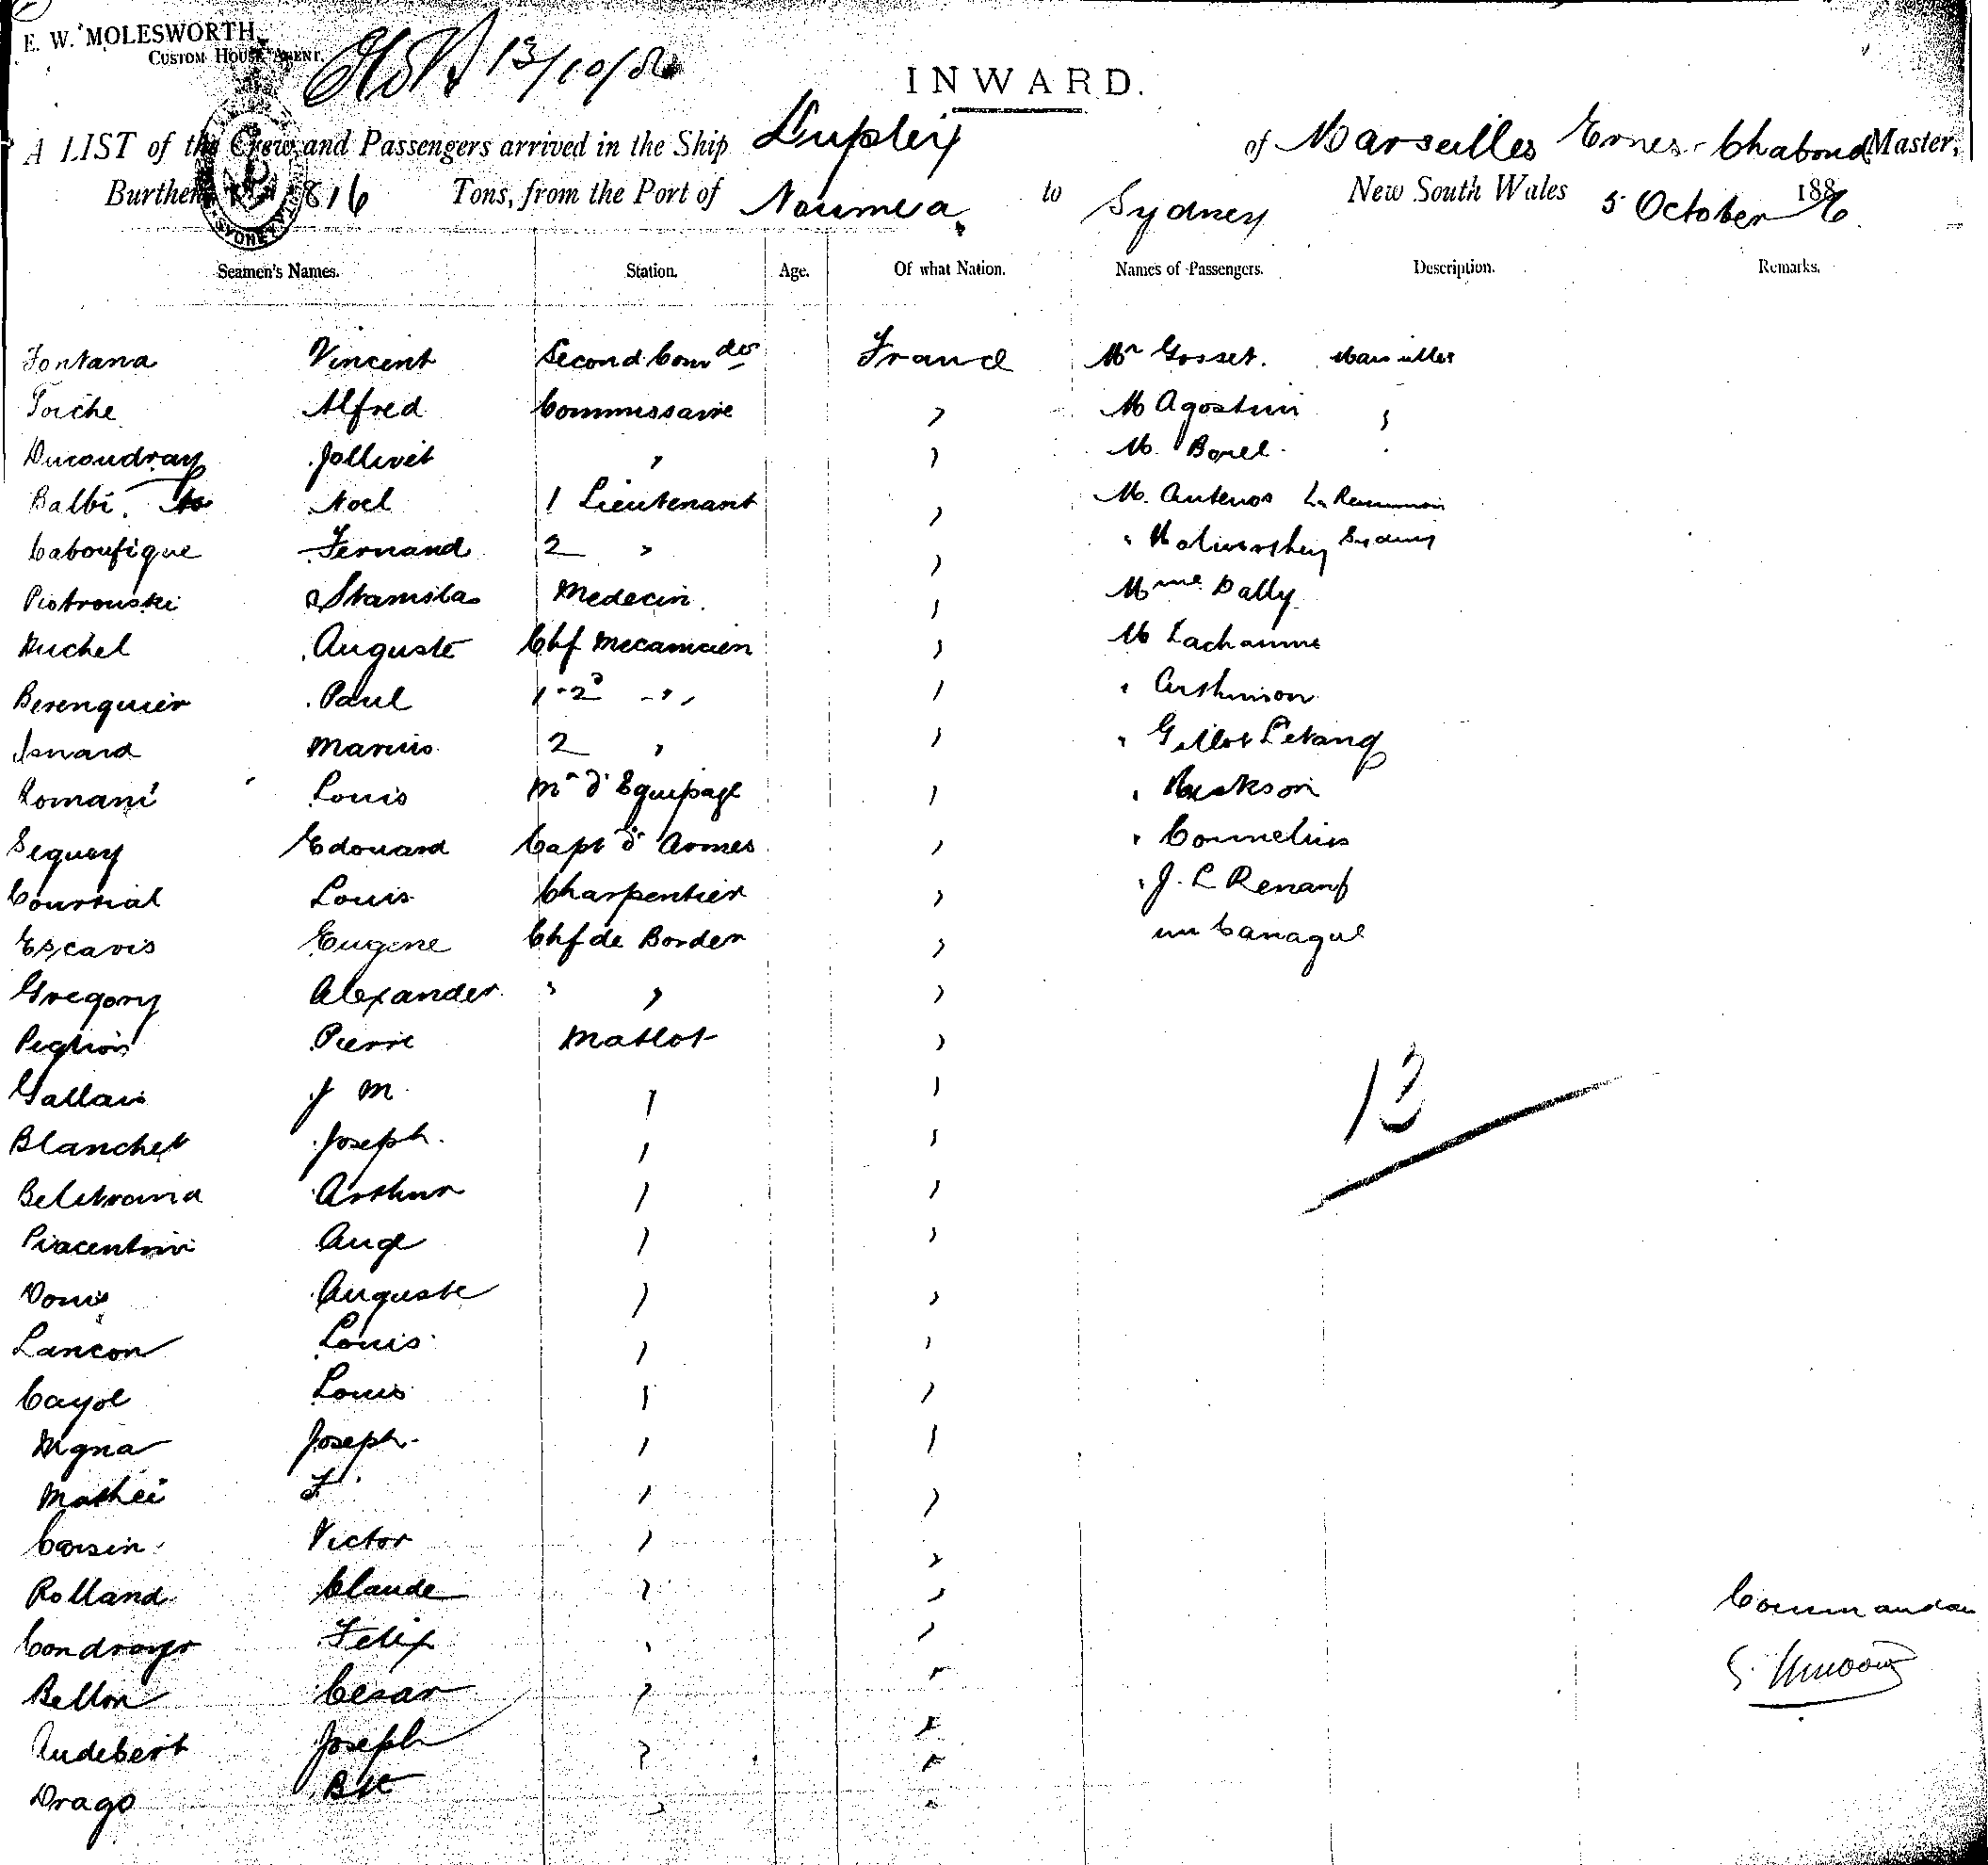 E. W. MOLESWORTH,
CUSTOM HOUSE AGENT.
13/10/86
INWARD.
A LIST of the Crew and Passengers arrived in the Ship Dupleix of Marseilles Ernes Chabaud Master,
Burthen 816 Tons, from the Port of Noumea to Sydney New South Wales 5 October 1886
Seamen's Names. Station. Age. Of what Nation. Names of Passengers. Description. Remarks.
Fontana Vincent Second Comder France Mr Gosset. Marseilles
Toiche Alfred Commissaire " M Agostini "
Ducoudray Jollivet " " M. Borel "
Balbi. Noel 1 Lieutenant " M. Antenos La Reunion
Caboufigue Fernand 2 " " " Sydney
Piotrouski Stanislas Medecin " Mme Dally
Michel Auguste Chf Mecanicien " M Lachaume
Berenguier Paul 1-2° " "
Isnard Marius 2 " " " Gillot Letang
Romani Louis Mr d'Equipage " "
Seguey Edouard Capt d'Armes " " Cornelius
Courtial Louis Charpentier " " J. L Renauf
Escavis Eugene Chf de Border " un Canaque
Gregory Alexander " " "
Peglion Pierre Matlot "
Gallais J M " "
Blanchet Joseph. " "
Beletrand Arthur " "
Piacentini Ange " "
Auguste " "
Lancon Louis " "
Cayol Louis " "
Joseph " "
Mathei F. " "
13
Cossin Victor " "
Rolland Claude " "
Condroyer Felix " "
Bellon Cesar " "
Audebert Joseph " "
Drago Bte " "
Commandan